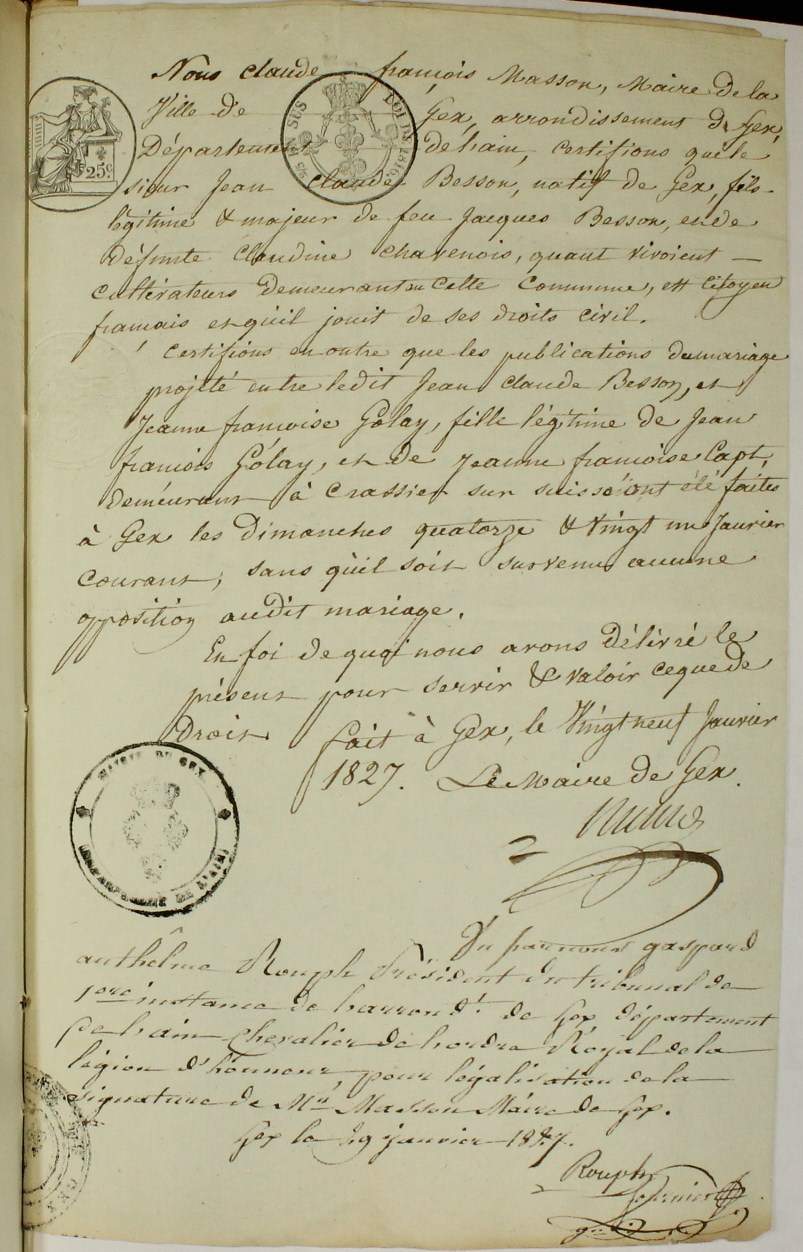 Nous claude françois Masson, Maire de la
Ville de Gex, arrondissement de Gex,
Département de l'ain, certifions que le
sieur Jean claude Besson, natif de Gex, fils
légitime & majeur de feu Jacques Besson, et de
défunte Claudine Chavenois, quant vivoient
cultivateurs demeurant en cette Commune, est citoyen
français et qu'il jouit de ses droits civil.
certifions en outre que les publications du mariage
projeté entre ledit Jean claude Besson, et
Jeanne françoise Golay, fille légitime de Jean
françois Golay, et de Jeanne françoise Capt,
demeurant à Crassier sur suisse ont été faites
à Gex les Dimanches quatorze & Vingt un Janvier
courant, sans qu'il soit survenu aucune
opposition audit mariage.
En foi de quoi nous avons délivré le
présent pour servir & valoir ce que de
Droit.
fait à Gex, le Vingt neuf Janvier
1827. Le Maire de Gex.
Vu par nous gaspard
anthelme Rouph Président du tribunal de
1ere instance de l'arrondt. de Gex département
de l'ain chevalier de l'ordre Royal de la
légion d'honneur, pour légalisation de la
signature de Mr. Masson Maire de Gex.
Gex le 29 janvier 1827.
Rouph
25c.
EN SUS
LOI DE 1816
MAIRIE DE GEX
(DEPARTEMENT DE L'AIN)
GEX